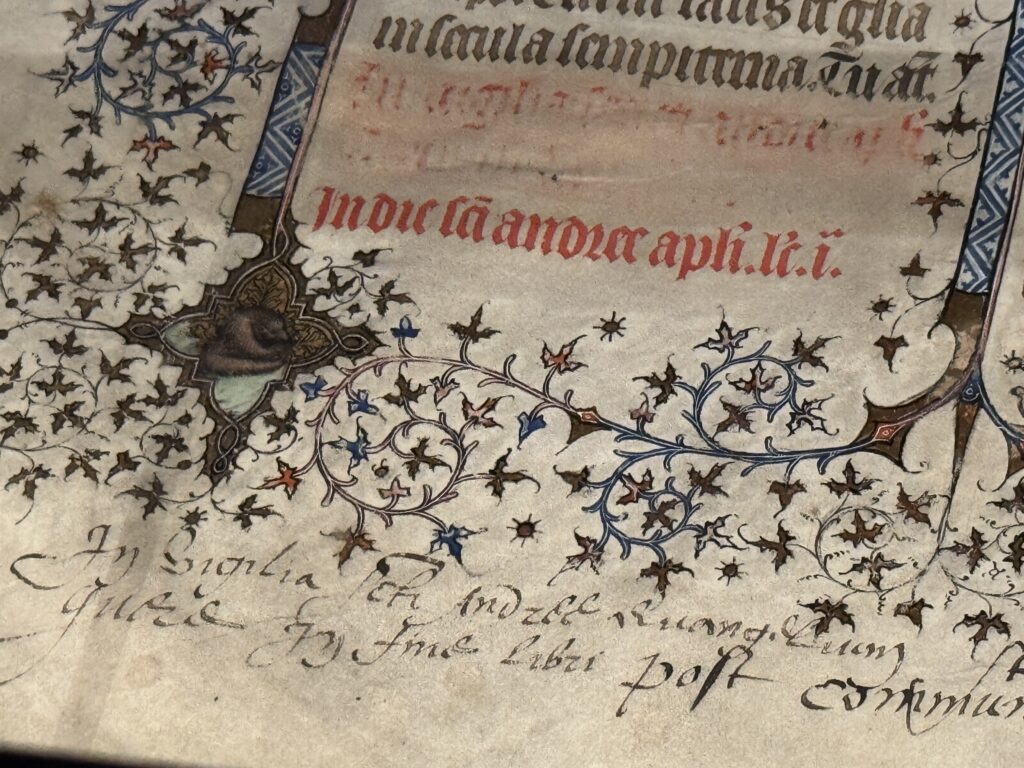 laus et glia
in secula sempiterna. Tu aūt.
In vigilia
In die sc̄i andree apl̄i. lc̄. i.
In Vigilia scti Andree Euangelium
quere In fine libri post Commun